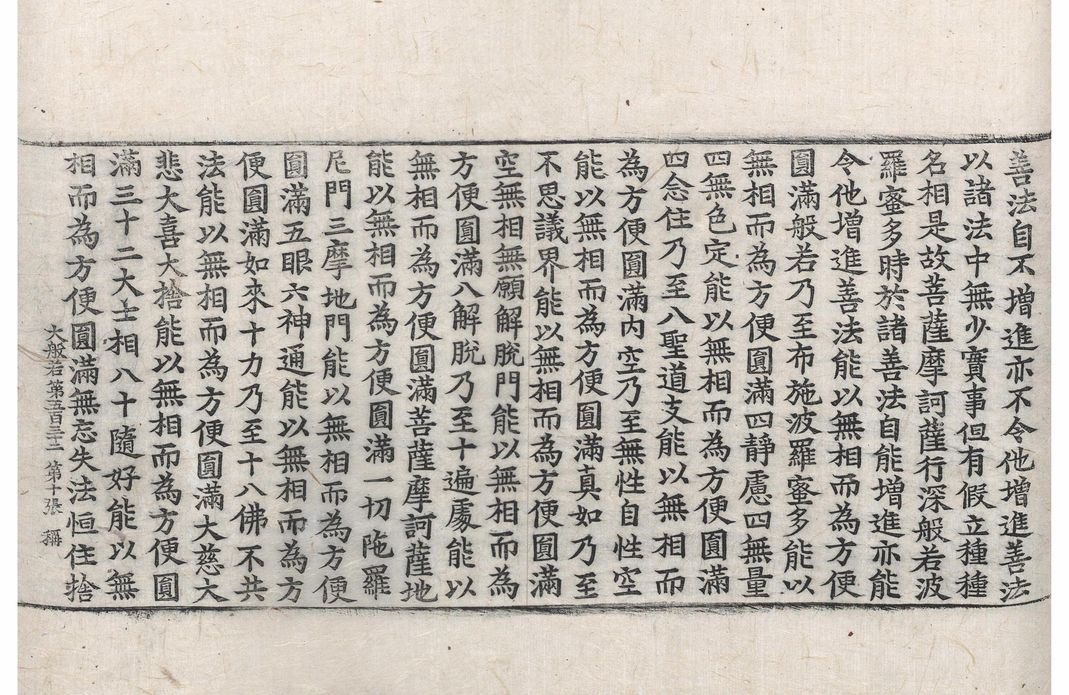 善法自不增進亦不令他增進善法
以諸法中無少實事但有假立種種
名相是故菩薩摩訶薩行深般若波
羅蜜多時於諸善法自能增進亦能
令他增進善法能以無相而為方便
圓滿般若乃至布施波羅蜜多能以
無相而為方便圓滿四靜慮四無量
四無色定能以無相而為方便圓滿
四念住乃至八聖道支能以無相而
為方便圓滿內空乃至無性自性空
能以無相而為方便圓滿真如乃至
不思議界能以無相而為方便圓滿
空無相無願解脫門能以無相而為
方便圓滿八解脫乃至十遍處能以
無相而為方便圓滿菩薩摩訶薩地
能以無相而為方便圓滿一切陁羅
尼門三摩地門能以無相而為方便
圓滿五眼六神通能以無相而為方
便圓滿如來十力乃至十八佛不共
法能以無相而為方便圓滿大慈大
悲大喜大捨能以無相而為方便圓
滿三十二大士相八十隨好能以無
相而為方便圓滿無忘失法恒住捨
大般若第五百三十二 第十張 稱